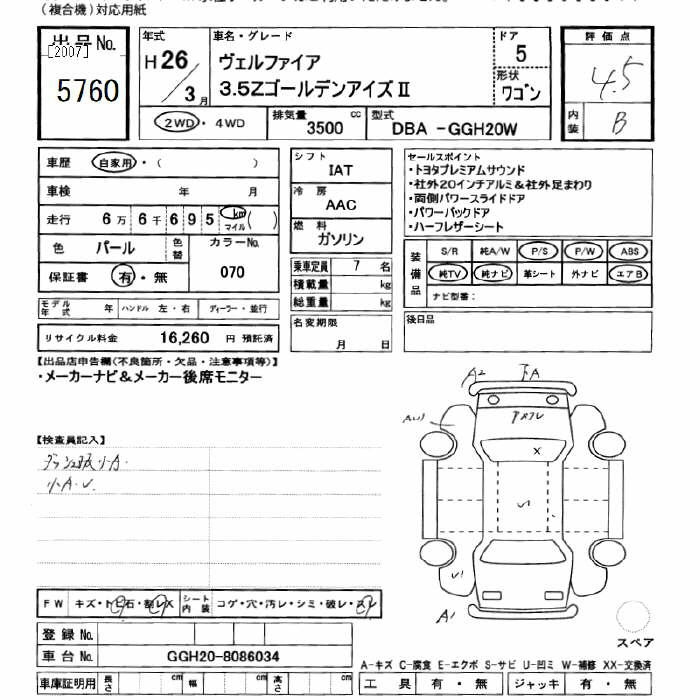 (複合機)対応用紙
出品No.
[2007]
5760
年式
H 26 / 3 月
車名・グレード
ヴェルファイア
3.5ZゴールデンアイズⅡ
ドア
5
形状
ワゴン
評価点
4.5
内装
B
2WD・4WD
排気量 cc
3500
型式
DBA -GGH20W
車歴 自家用・( )
車検 年 月
走行 6万 6千 6 9 5 km マイル ( )
色 パール 色替
カラーNo.
070
保証書 有・無
シフト
IAT
冷房
AAC
燃料
ガソリン
乗車定員 7 名
積載量 kg
総重量 kg
名変期限
月 日
セールスポイント
・トヨタプレミアムサウンド
・社外20インチアルミ&社外足まわり
・両側パワースライドドア
・パワーバックドア
・ハーフレザーシート
装備品
S/R 純A/W P/S P/W ABS
純TV 純ナビ 革シート 外ナビ エアB
ナビ型番:
後日品
モデル年式 年 ハンドル 左・右 ディーラー・並行
リサイクル料金 16,260 円 預託済
【出品店申告欄(不良箇所・欠品・注意事項等)】
・メーカーナビ&メーカー後席モニター
【検査員記入】
小A.
小A.U.
A2
A
X
U1
A1
FW キズ・トビ石・割レX
シート内装 コゲ・穴・汚レ・シミ・破レ・スレ
登録No.
車台No. GGH20-8086034
車庫証明用 長さ cm 幅 cm 高さ cm
スペア
A-キズ C-腐食 E-エクボ S-サビ U-凹ミ W-補修 XX-交換済
工具 有・無 ジャッキ 有・無